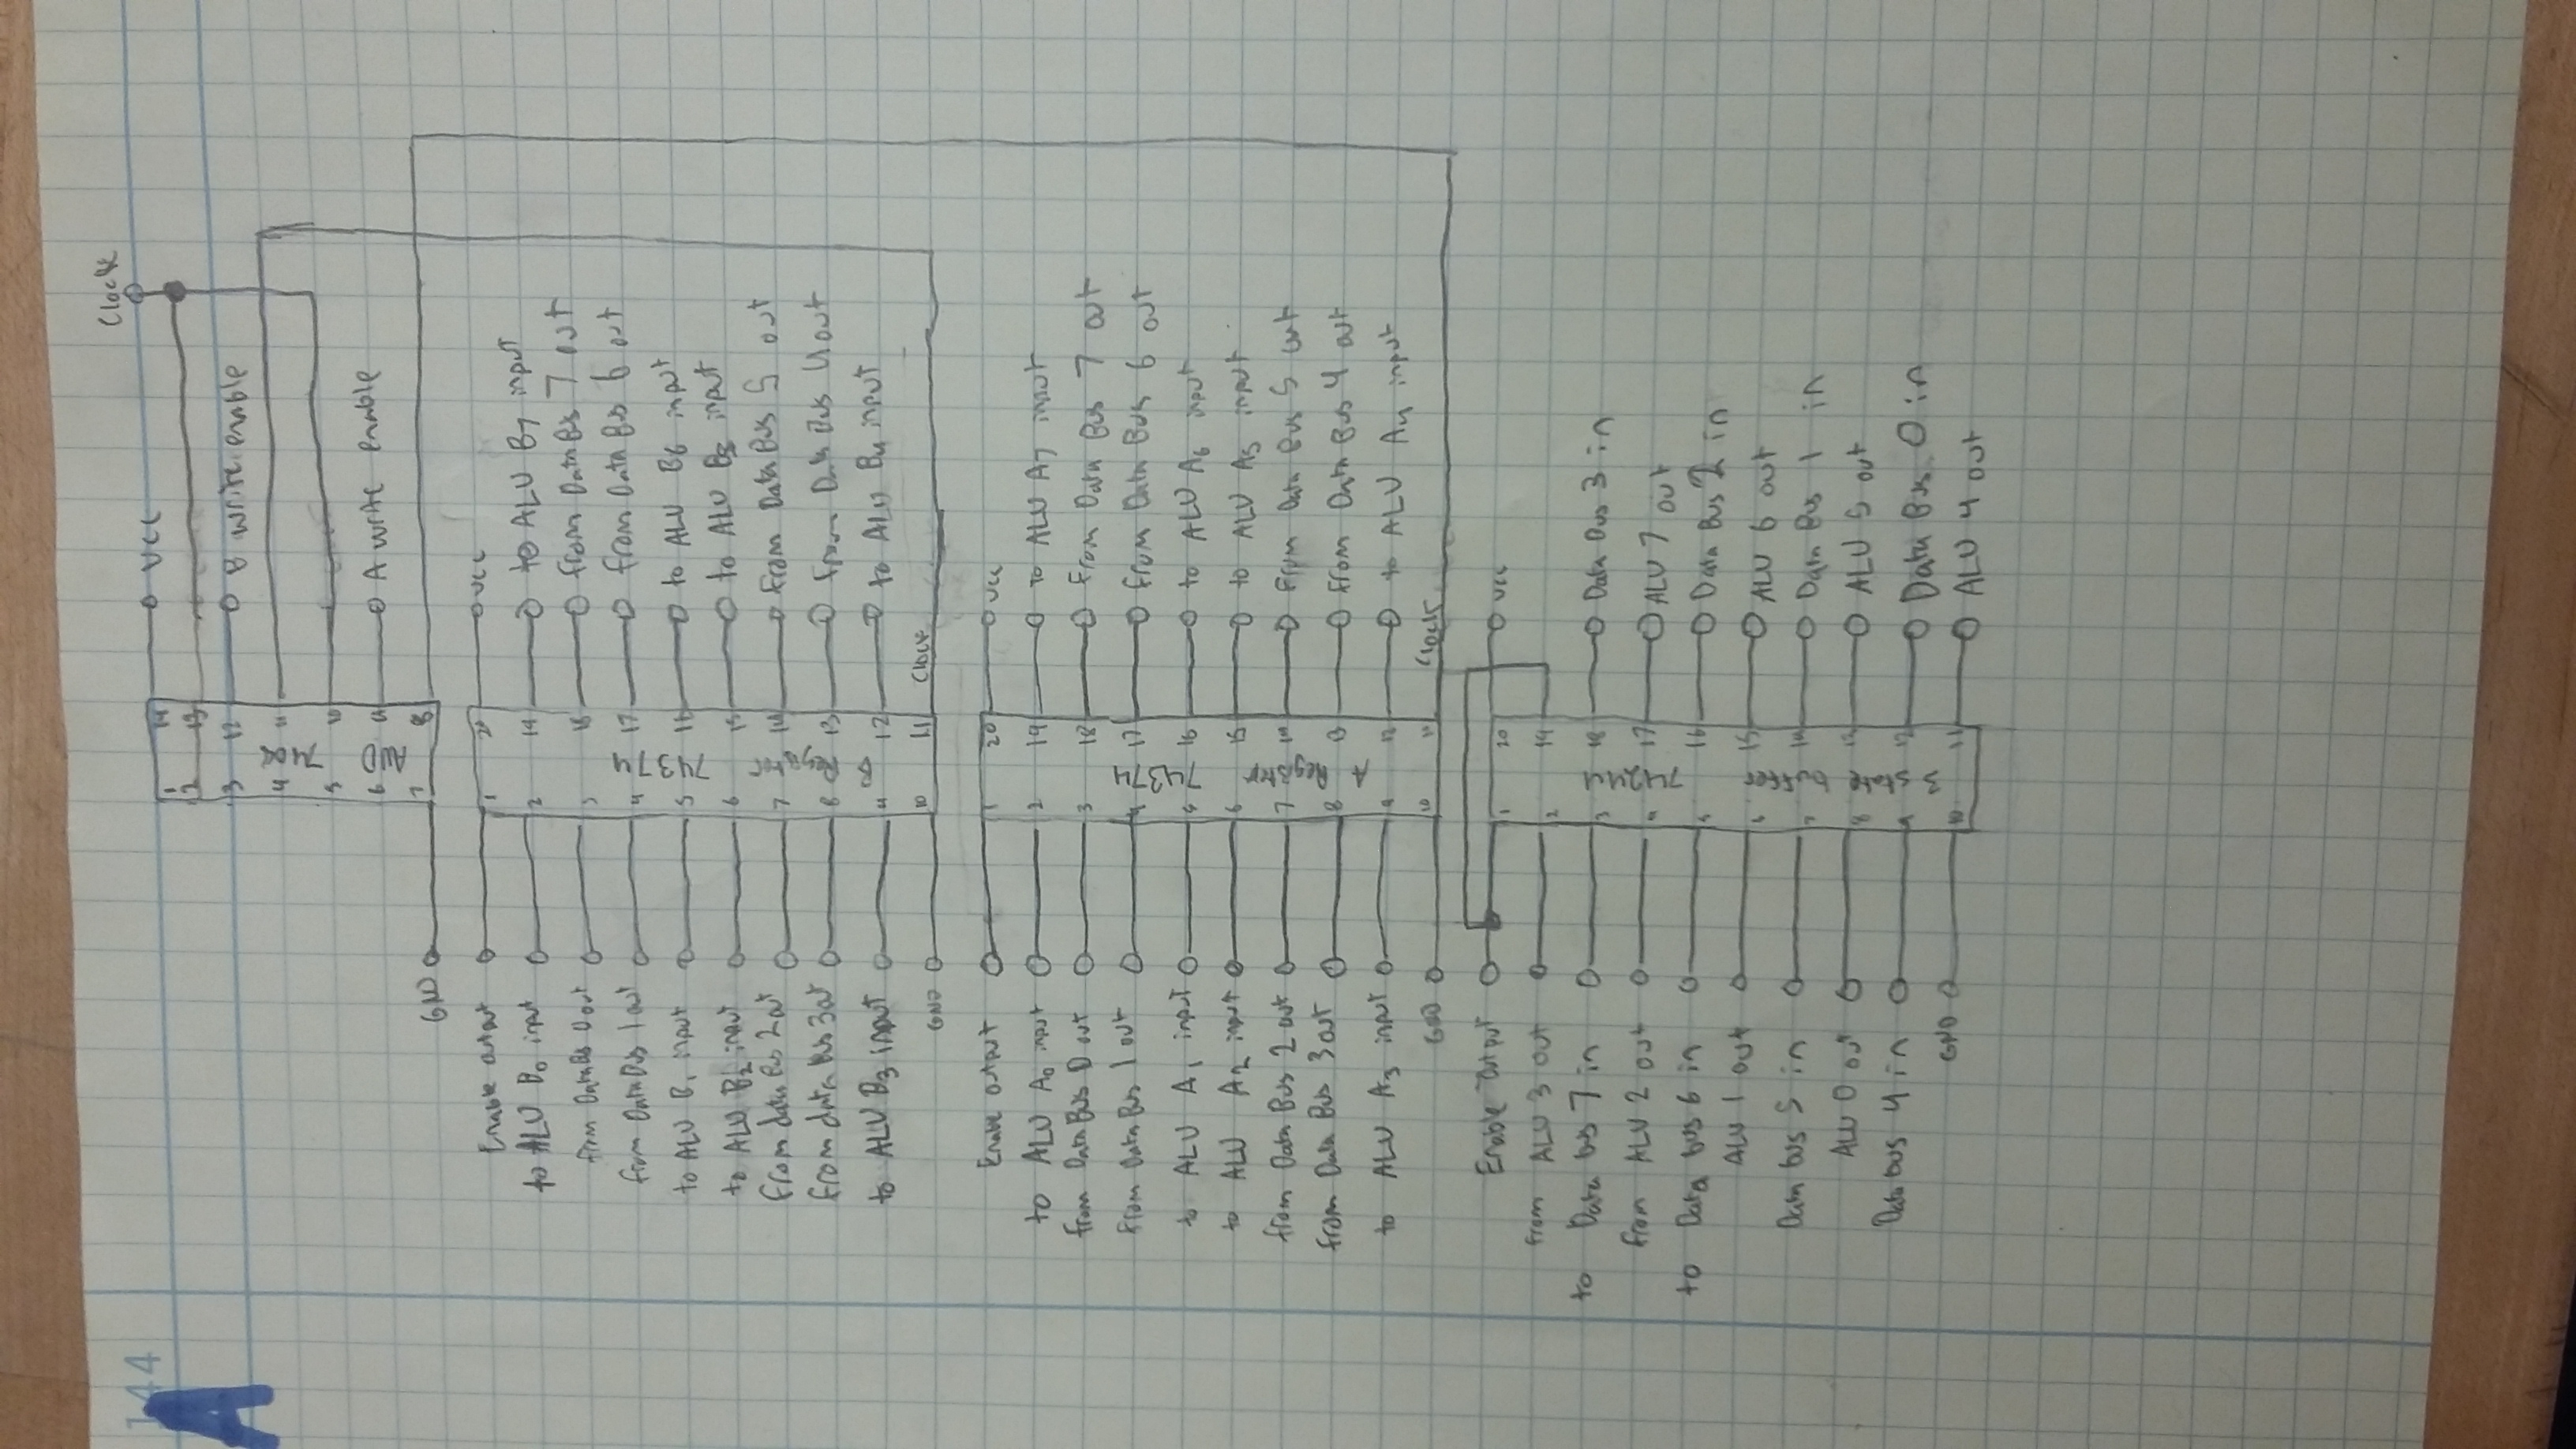 144
A
Clock
1 14 VCC
2 13
3 12 B write enable
4 11
5 10
6 9 A write enable
GND 7 8
AND 7408
Enable output 1 20 VCC
to ALU B0 input 2 19 to ALU B7 input
from DataBus 0 out 3 18 from DataBus 7 out
from DataBus 1 out 4 17 from Data Bus 6 out
to ALU B1 input 5 16 to ALU B6 input
to ALU B2 input 6 15 to ALU B5 input
from data Bus 2 out 7 14 from Data Bus 5 out
from data Bus 3 out 8 13 from Data Bus 4 out
to ALU B3 input 9 12 to ALU B4 input
GND 10 11 Clock
B Register 74374
Enable output 1 20 VCC
to ALU A0 input 2 19 to ALU A7 input
from Data Bus 0 out 3 18 from Data Bus 7 out
from Data Bus 1 out 4 17 from Data Bus 6 out
to ALU A1 input 5 16 to ALU A6 input
to ALU A2 input 6 15 to ALU A5 input
from Data Bus 2 out 7 14 From Data Bus 5 out
from Data Bus 3 out 8 13 from Data Bus 4 out
to ALU A3 input 9 12 to ALU A4 input
GND 10 11 Clock
A Register 74374
Enable Output 1 20 VCC
from ALU 3 out 2 19
to Data bus 7 in 3 18 Data Bus 3 in
from ALU 2 out 4 17 ALU 7 out
to Data bus 6 in 5 16 Data Bus 2 in
ALU 1 out 6 15 ALU 6 out
Data bus 5 in 7 14 Data Bus 1 in
ALU 0 out 8 13 ALU 5 out
Data bus 4 in 9 12 Data Bus 0 in
GND 10 11 ALU 4 out
3 state buffer 74244